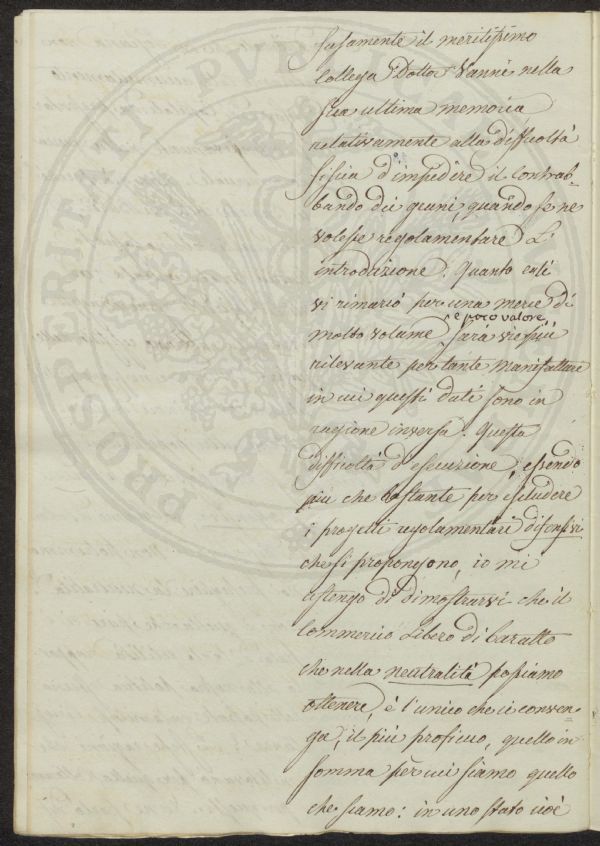 fusamente il meritissimo
Collega Dottor Vanni nella
sua ultima memoria
relativamente alla difficoltà
fisica d'impedire il contrab-
bando dei generi, quando se ne
volesse regolamentare l'
introduzione. Quanto egli
vi rimarcò per una merce di
molto volume e poco valore, sarà vie più
rilevante per tante manifatture
in cui questi dati sono in
ragione inversa. Questa
difficoltà d'esecuzione, essendo
più che bastante per escludere
i progetti regolamentari difensivi
che si propongono, io mi
astengo di dimostrarvi che il
Commercio libero di baratto
che nella neutralità possiamo
ottenere, è l'unico che ci conven-
ga, il più proficuo, quello in
somma per cui siamo quello
che siamo: in uno stato cioè
PROSPERITATI PUBLICAE